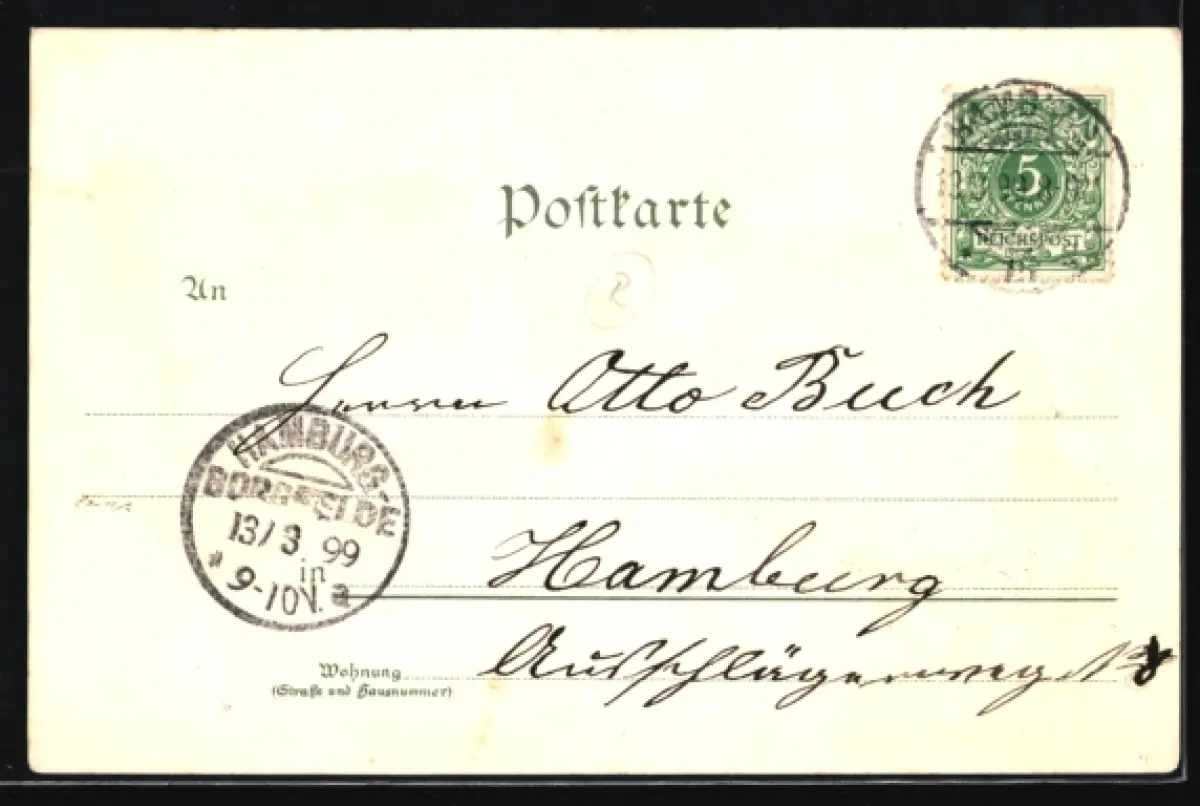 Postkarte
HAMBURG
5
PFENNIG
REICHSPOST
An
Herrn Otto Buch
HAMBURG-
BORGFELDE
13/3 99
* 9-10V. a
in Hamburg
Wohnung Ausschlägerweg
(Straße und Hausnummer)